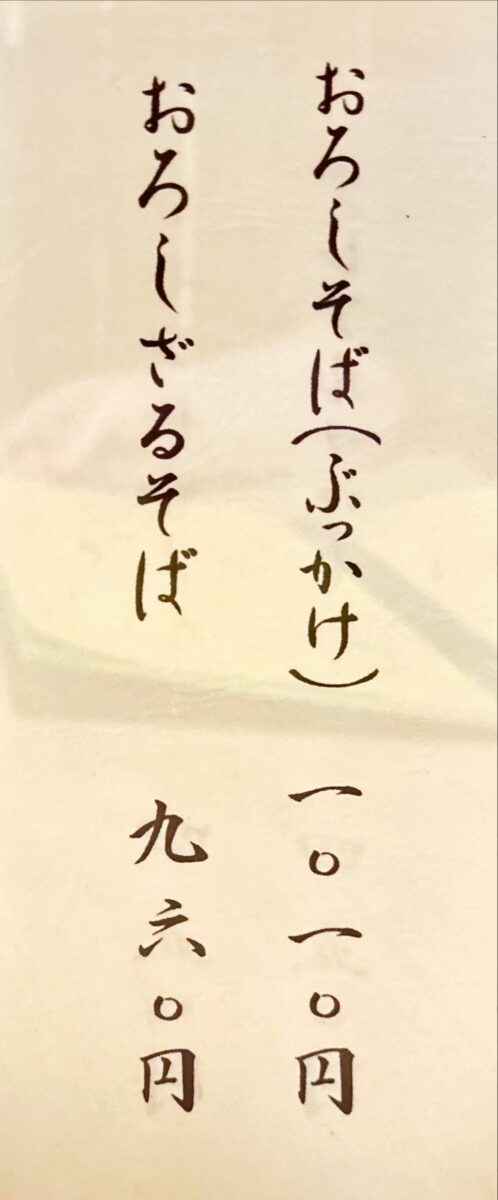 おろしそば(ぶっかけ) 一〇一〇円
おろしざるそば 九六〇円